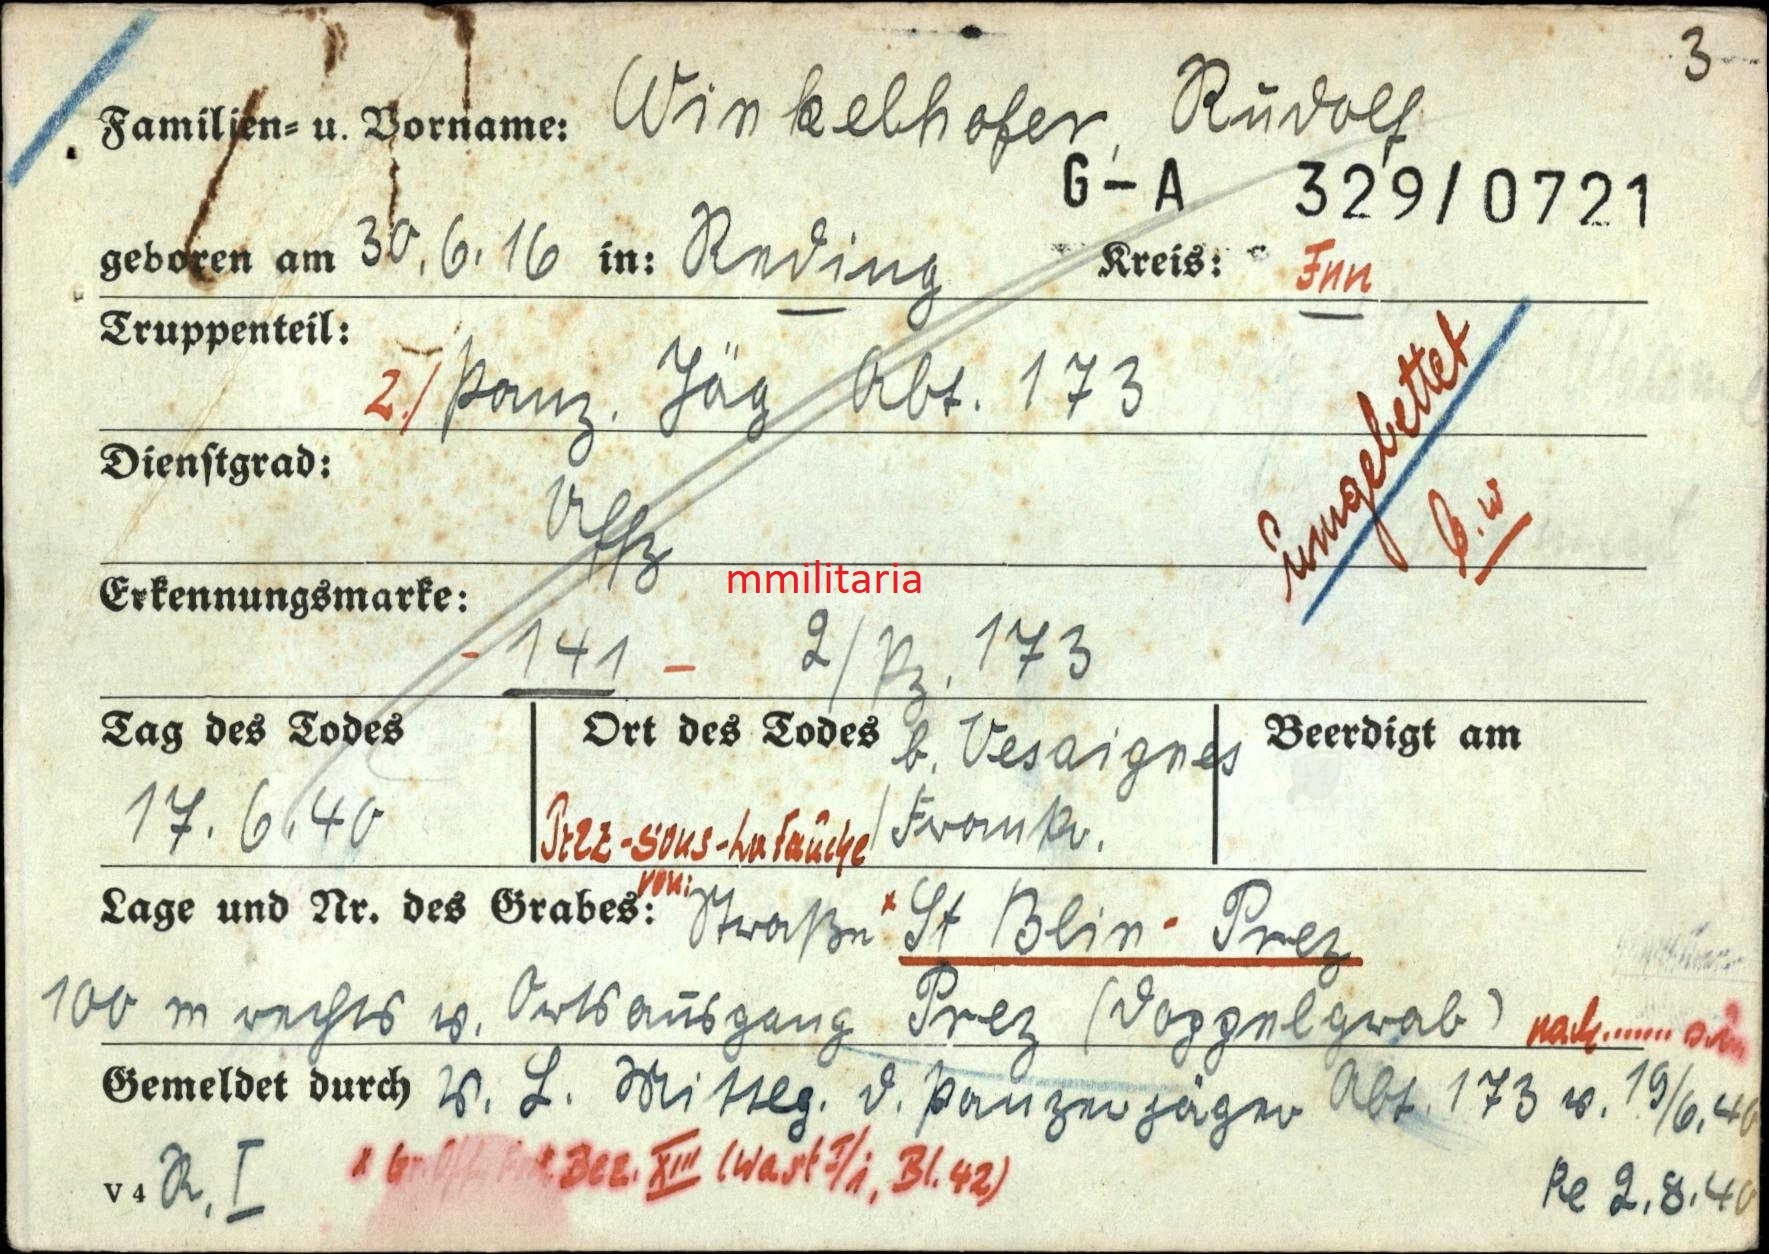 3
Familien= u. Vorname: Winkelhofer, Rudolf
G-A 329/0721
geboren am 30.6.16 in: Reding Kreis:
Truppenteil:
2./ Panz. Jäg Abt. 173
Dienstgrad:
Uffz
umgebettet
mmilitaria
Erkennungsmarke:
- 141 - 2/Pz. 173
Tag des Todes Ort des Todes b. Vesaignes Beerdigt am
17.6.40 Prez-sous-Lafauche / Frankr.
von:
Lage und Nr. des Grabes: Straße x St Blin - Prez
100 m rechts v. Ortsausgang Prez (Doppelgrab) nach
Gemeldet durch V. L. Mittlg. d. Panzerjäger Abt. 173 v. 19/6.40
V 4 R. I x Gr. Offz. Bez. XIII (Wast I/i, Bl. 42)
Re 2.8.40